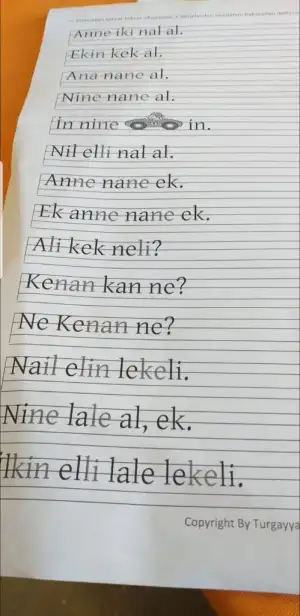 Anne iki nal al.
Ekin kek al.
Ana nane al.
Nine nane al.
İn nine in.
Nil elli nal al.
Anne nane ek.
Ek anne nane ek.
Ali kek neli?
Kenan kan ne?
Ne Kenan ne?
Nail elin lekeli.
Nine lale al, ek.
İlkin elli lale lekeli.
Copyright By Turgayya